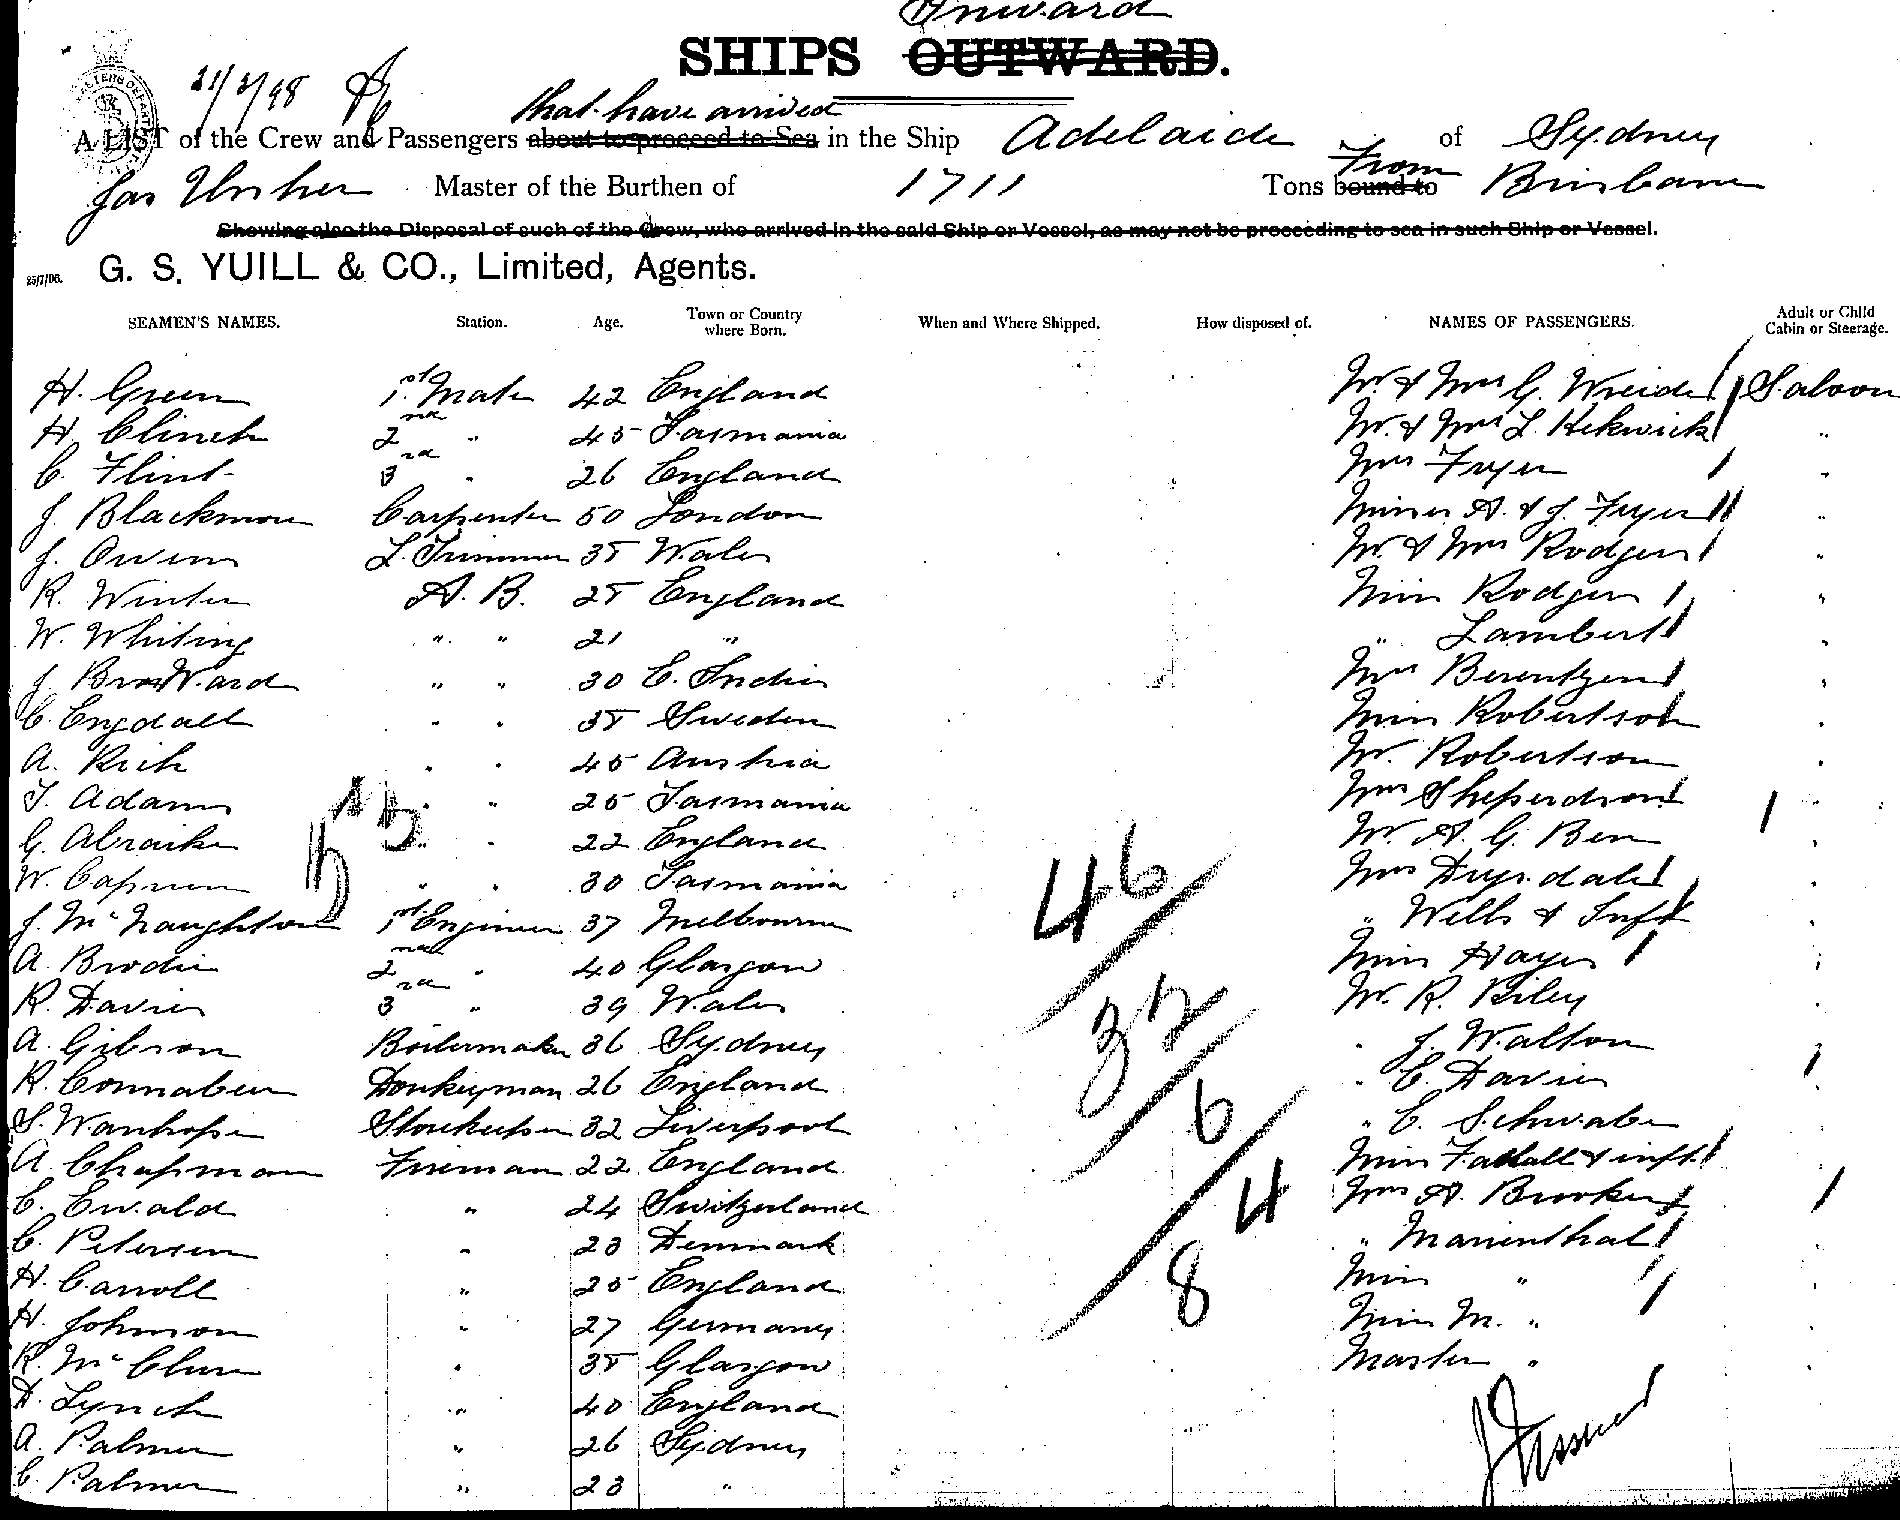 Inward
SHIPS OUTWARD.
that have arrived
A LIST of the Crew and Passengers about to proceed to Sea in the Ship Adelaide of Sydney
From
Jas Usher Master of the Burthen of 1711 Tons bound to Brisbane
Showing also the Disposal of such of the Crew, who arrived in the said Ship or Vessel, as may not be proceeding to sea in such Ship or Vessel.
25/7/06. G. S. YUILL & CO., Limited, Agents.
SEAMEN'S NAMES. Station. Age. Town or Country where Born. When and Where Shipped. How disposed of. NAMES OF PASSENGERS. Adult or Child Cabin or Steerage.
H. Green 1st Mate 42 England Mr. & Mrs G. Wreide Saloon
H. Clinch 2nd " 45 Tasmania Mr. & Mrs L. Kekwick "
C. Flint 3rd " 26 England Mrs Fryer "
J. Blackmore Carpenter 50 London Misses A. & J. Fryer "
J. Owen L. Trimmer 35 Wales Mr. & Mrs Rodgers "
R. Winter A. B. 25 England Miss Rodgers "
W. Whiting " " 21 " " Lambert "
J. Ward " " 30 E. Indies Mrs Berentzen "
C. Engdall " " 35 Sweden Miss Robertson "
A. Rich " " 45 Austria Mr. Robertson "
T. Adams " " 25 Tasmania Mrs Sheperdson "
G. " " 22 England Mr. A. G. "
W. " " 30 Tasmania Mrs Drysdale "
J. McNaughton 1st Engineer 37 Melbourne " Wells & Inft "
A. Brodie 2nd " 40 Glasgow Miss Hayes "
R. Davies 3rd " 39 Wales Mr. R. Riley "
A. Gibson Boilermaker 36 Sydney " J. Walton "
R. Connaben Donkeyman 26 England " C. Davies "
S. Wanhope Storekeeper 32 Liverpool " E. Schwabe "
A. Chapman Fireman 22 England Miss & inft. "
C. Ewald " 24 Switzerland Mrs A. Brookes "
C. Petersen " 23 Denmark " Marienthal "
H. Carroll " 25 England Miss " "
H. Johnson " 27 Germany Miss M. " "
R. McClure " 35 Glasgow Master " "
D. Lynch " 40 England
A. Palmer " 26 Sydney
C. Palmer " 23 "
46
32
6
4
8